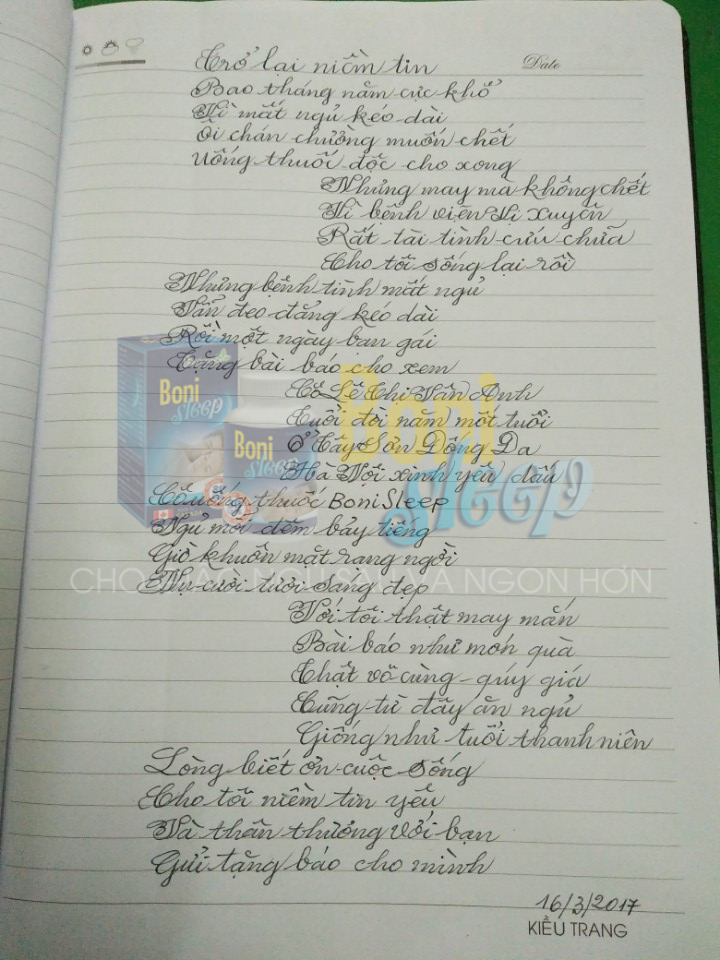 Date
Trở lại niềm tin
Bao tháng năm cực khổ
Vì mất ngủ kéo dài
Ôi chán chường muốn chết
Uống thuốc độc cho xong
Nhưng may mà không chết
Vì bệnh viện Vị Xuyên
Rất tài tình cứu chữa
Cho tôi sống lại rồi
Nhưng bệnh tình mất ngủ
Vẫn đeo đẳng kéo dài
Rồi một ngày bạn gái
Tặng bài báo cho xem
Cô Lê Thị Vân Anh
Tuổi đời năm mốt tuổi
Ở Tây Sơn Đống Đa
Hà Nội xinh yêu dấu
Cô uống thuốc BoniSleep
Ngủ mỗi đêm bảy tiếng
Giờ khuôn mặt rạng ngời
Nụ cười tươi sáng đẹp
Với tôi thật may mắn
Bài báo như món quà
Thật vô cùng quý giá
Cũng từ đấy ăn ngủ
Giống như tuổi thanh niên
Lòng biết ơn cuộc sống
Cho tôi niềm tin yêu
Và thân thương với bạn
Gửi tặng báo cho mình
16/3/2017
KIỀU TRANG
Boni
Sleep
Boni
Sleep
Boni
Sleep
CHO GIẤC NGỦ SÂU VÀ NGON HƠN